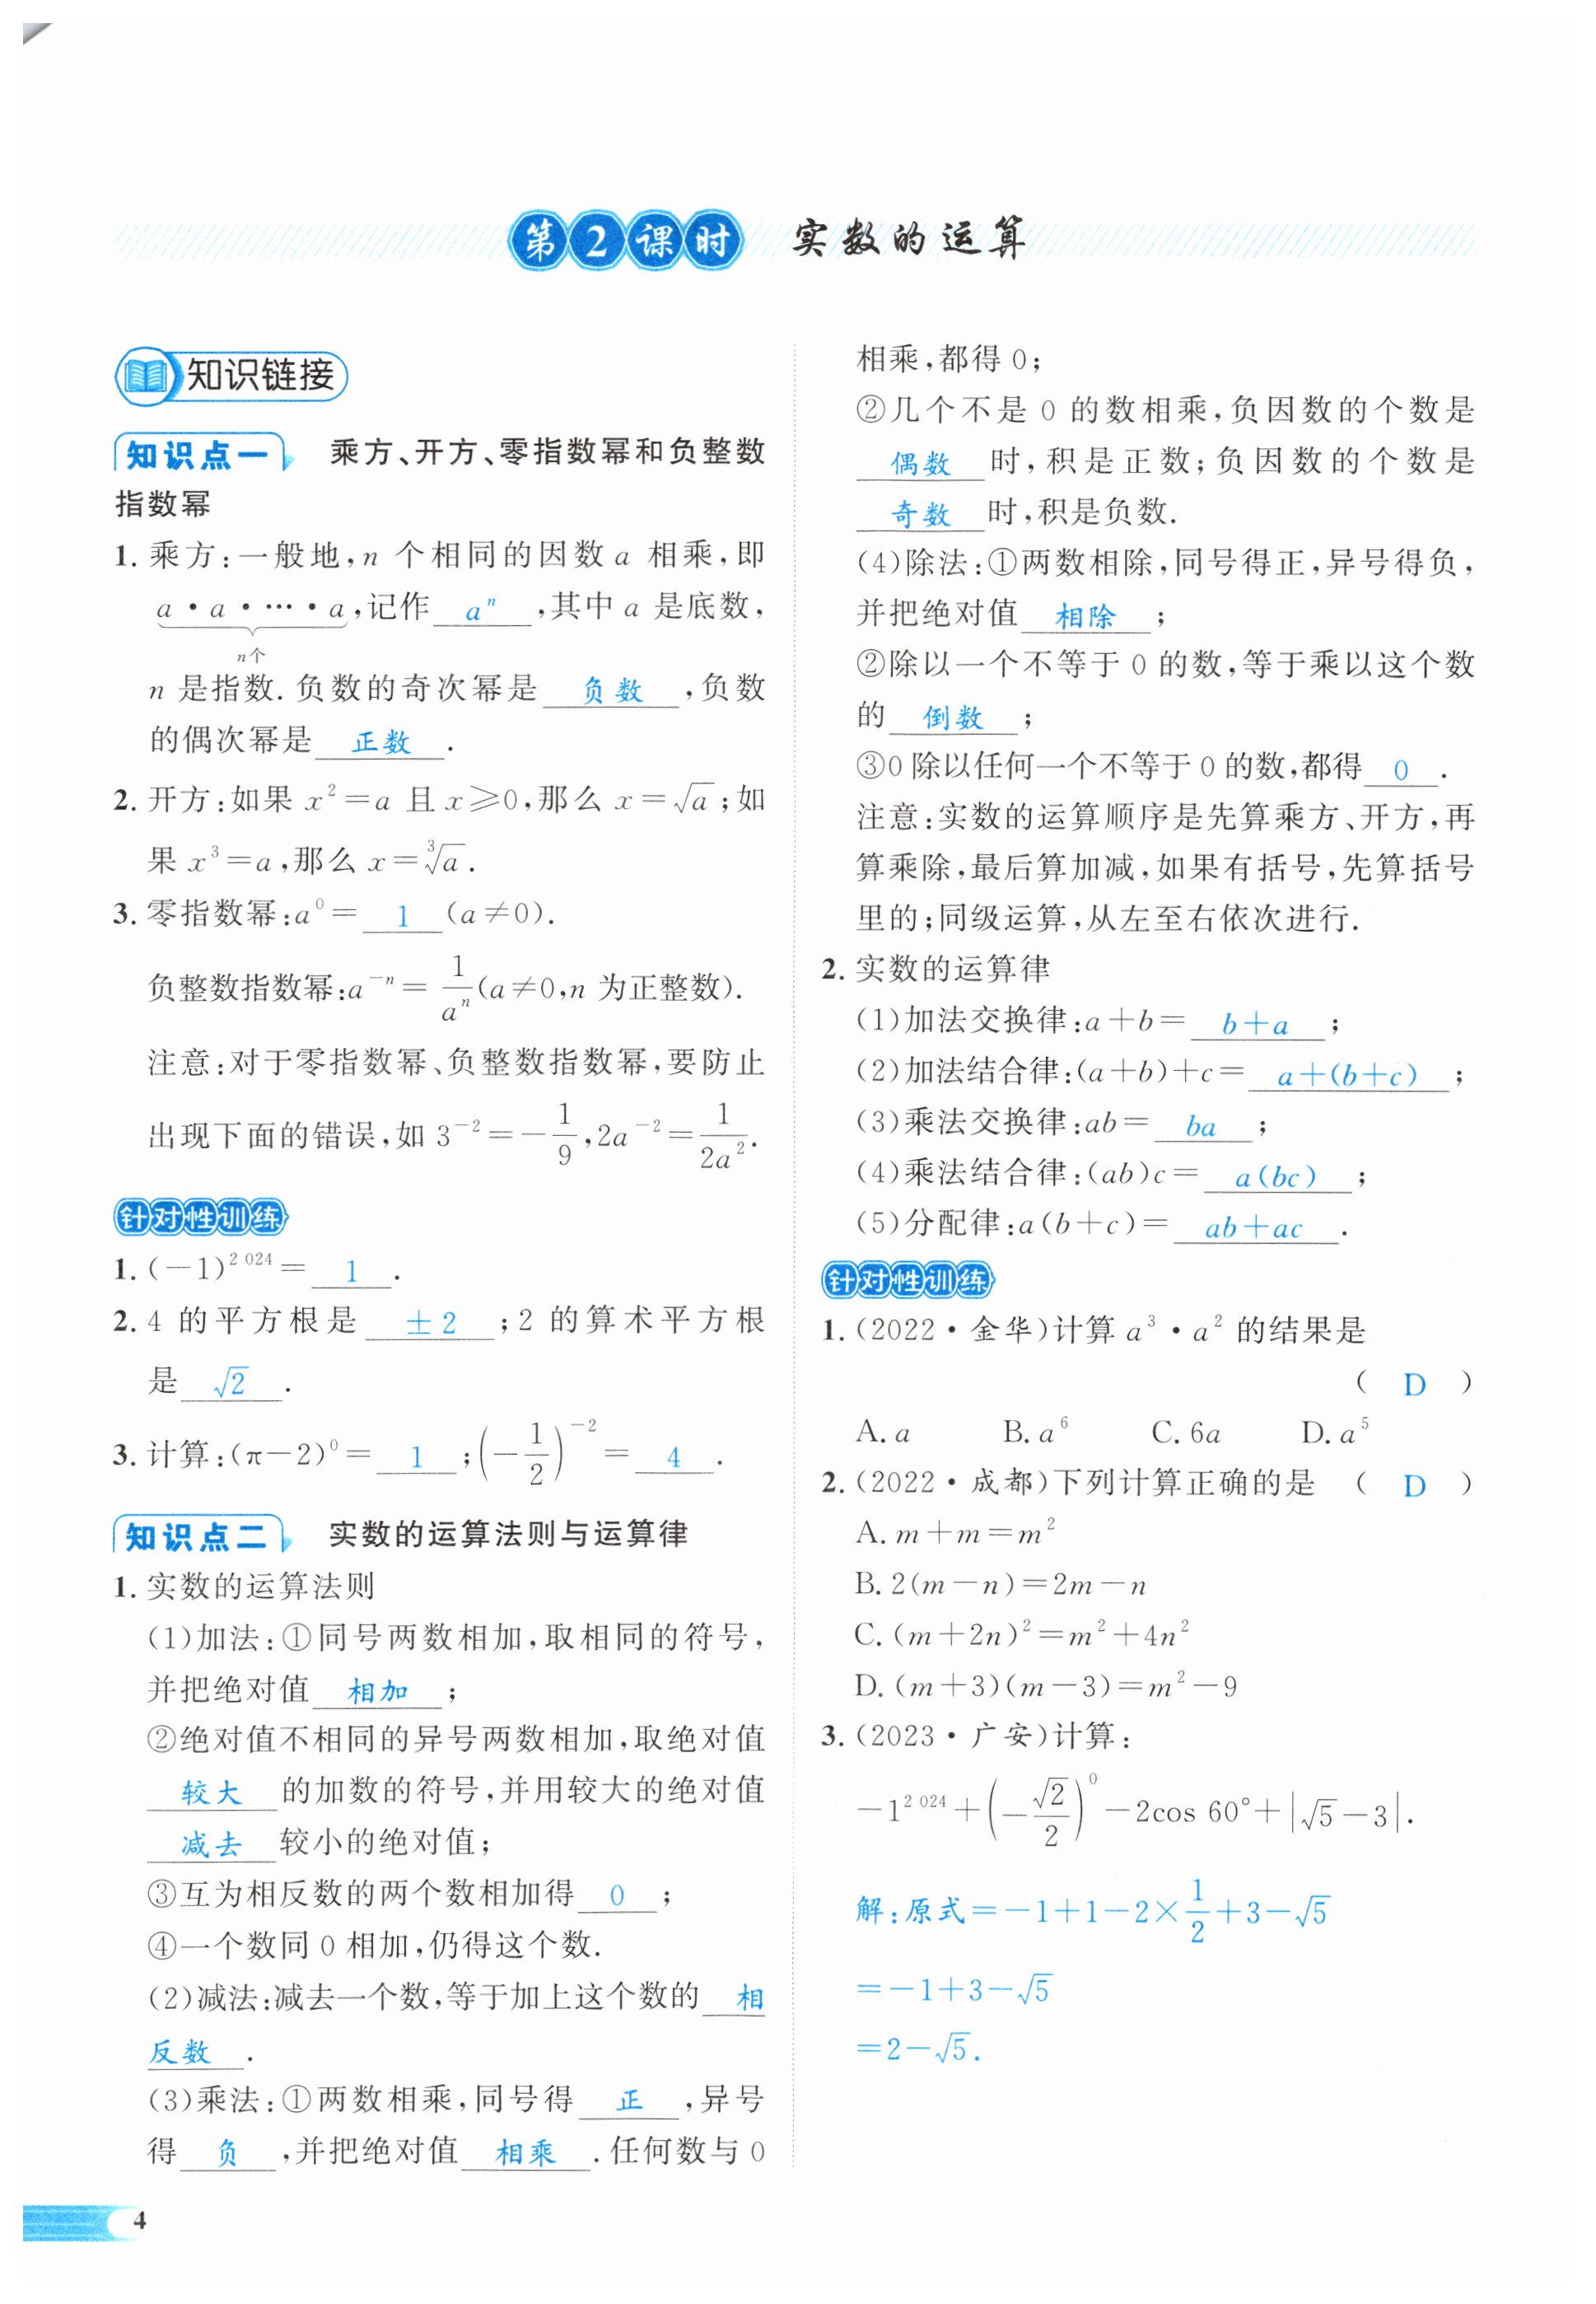 第2课时 实数的运算
知识链接
知识点一 乘方、开方、零指数幂和负整数
指数幂
1. 乘方:一般地,n 个相同的因数 a 相乘,即
a·a·…·a,记作 aⁿ ,其中 a 是底数,
n个
n 是指数. 负数的奇次幂是 负数 ,负数
的偶次幂是 正数 .
2. 开方:如果 x²=a 且 x≥0,那么 x=√a;如
果 x³=a,那么 x=∛a.
3. 零指数幂:a⁰= 1 (a≠0).
负整数指数幂:a⁻ⁿ=1/aⁿ(a≠0,n 为正整数).
注意:对于零指数幂、负整数指数幂,要防止
出现下面的错误,如 3⁻²=-1/9,2a⁻²=1/2a².
针对性训练
1. (-1)²⁰²⁴= 1 .
2. 4 的平方根是 ±2 ;2 的算术平方根
是 √2 .
3. 计算:(π-2)⁰= 1 ;(-1/2)⁻²= 4 .
知识点二 实数的运算法则与运算律
1. 实数的运算法则
(1)加法:①同号两数相加,取相同的符号,
并把绝对值 相加 ;
②绝对值不相同的异号两数相加,取绝对值
较大 的加数的符号,并用较大的绝对值
减去 较小的绝对值;
③互为相反数的两个数相加得 0 ;
④一个数同 0 相加,仍得这个数.
(2)减法:减去一个数,等于加上这个数的 相
反数 .
(3)乘法:①两数相乘,同号得 正 ,异号
得 负 ,并把绝对值 相乘 .任何数与 0
4
相乘,都得 0;
②几个不是 0 的数相乘,负因数的个数是
偶数 时,积是正数;负因数的个数是
奇数 时,积是负数.
(4)除法:①两数相除,同号得正,异号得负,
并把绝对值 相除 ;
②除以一个不等于 0 的数,等于乘以这个数
的 倒数 ;
③0 除以任何一个不等于 0 的数,都得 0 .
注意:实数的运算顺序是先算乘方、开方,再
算乘除,最后算加减,如果有括号,先算括号
里的;同级运算,从左至右依次进行.
2. 实数的运算律
(1)加法交换律:a+b= b+a ;
(2)加法结合律:(a+b)+c= a+(b+c) ;
(3)乘法交换律:ab= ba ;
(4)乘法结合律:(ab)c= a(bc) ;
(5)分配律:a(b+c)= ab+ac .
针对性训练
1. (2022·金华)计算 a³·a² 的结果是
( D )
A. a B. a⁶ C. 6a D. a⁵
2. (2022·成都)下列计算正确的是 ( D )
A. m+m=m²
B. 2(m-n)=2m-n
C. (m+2n)²=m²+4n²
D. (m+3)(m-3)=m²-9
3. (2023·广安)计算:
-1²⁰²⁴+(-√2/2)⁰-2cos 60°+|√5-3|.
解:原式=-1+1-2×1/2+3-√5
=-1+3-√5
=2-√5.